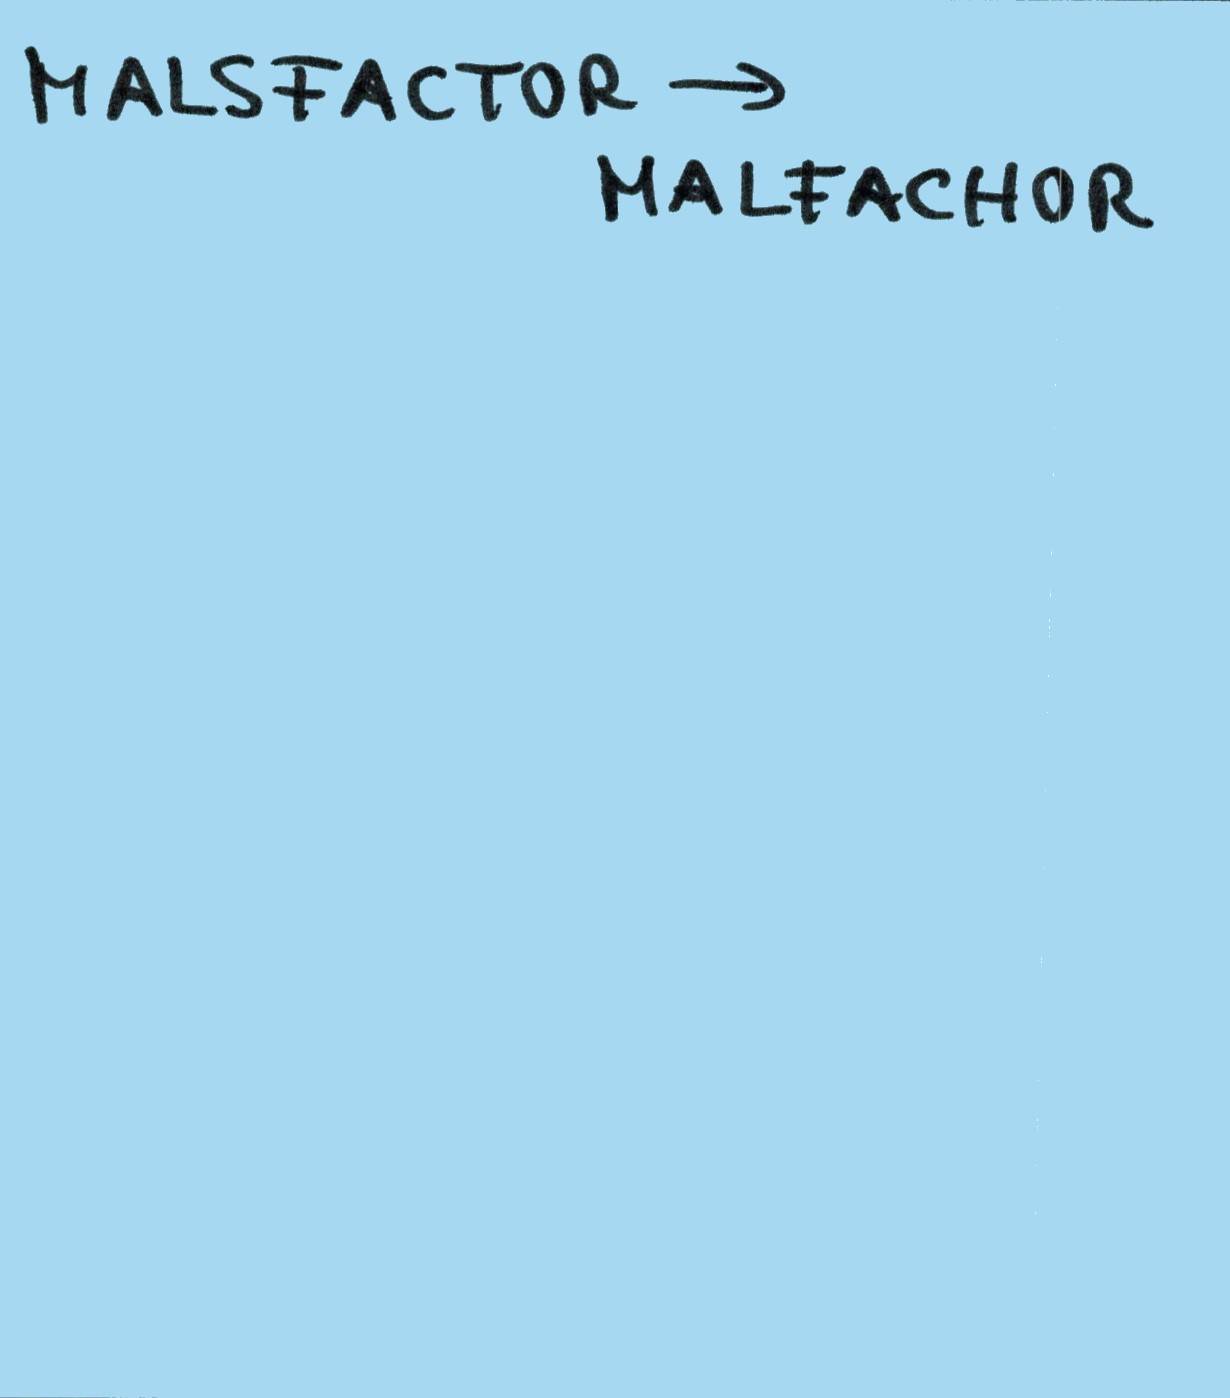 MALSFACTOR →
MALFACHOR